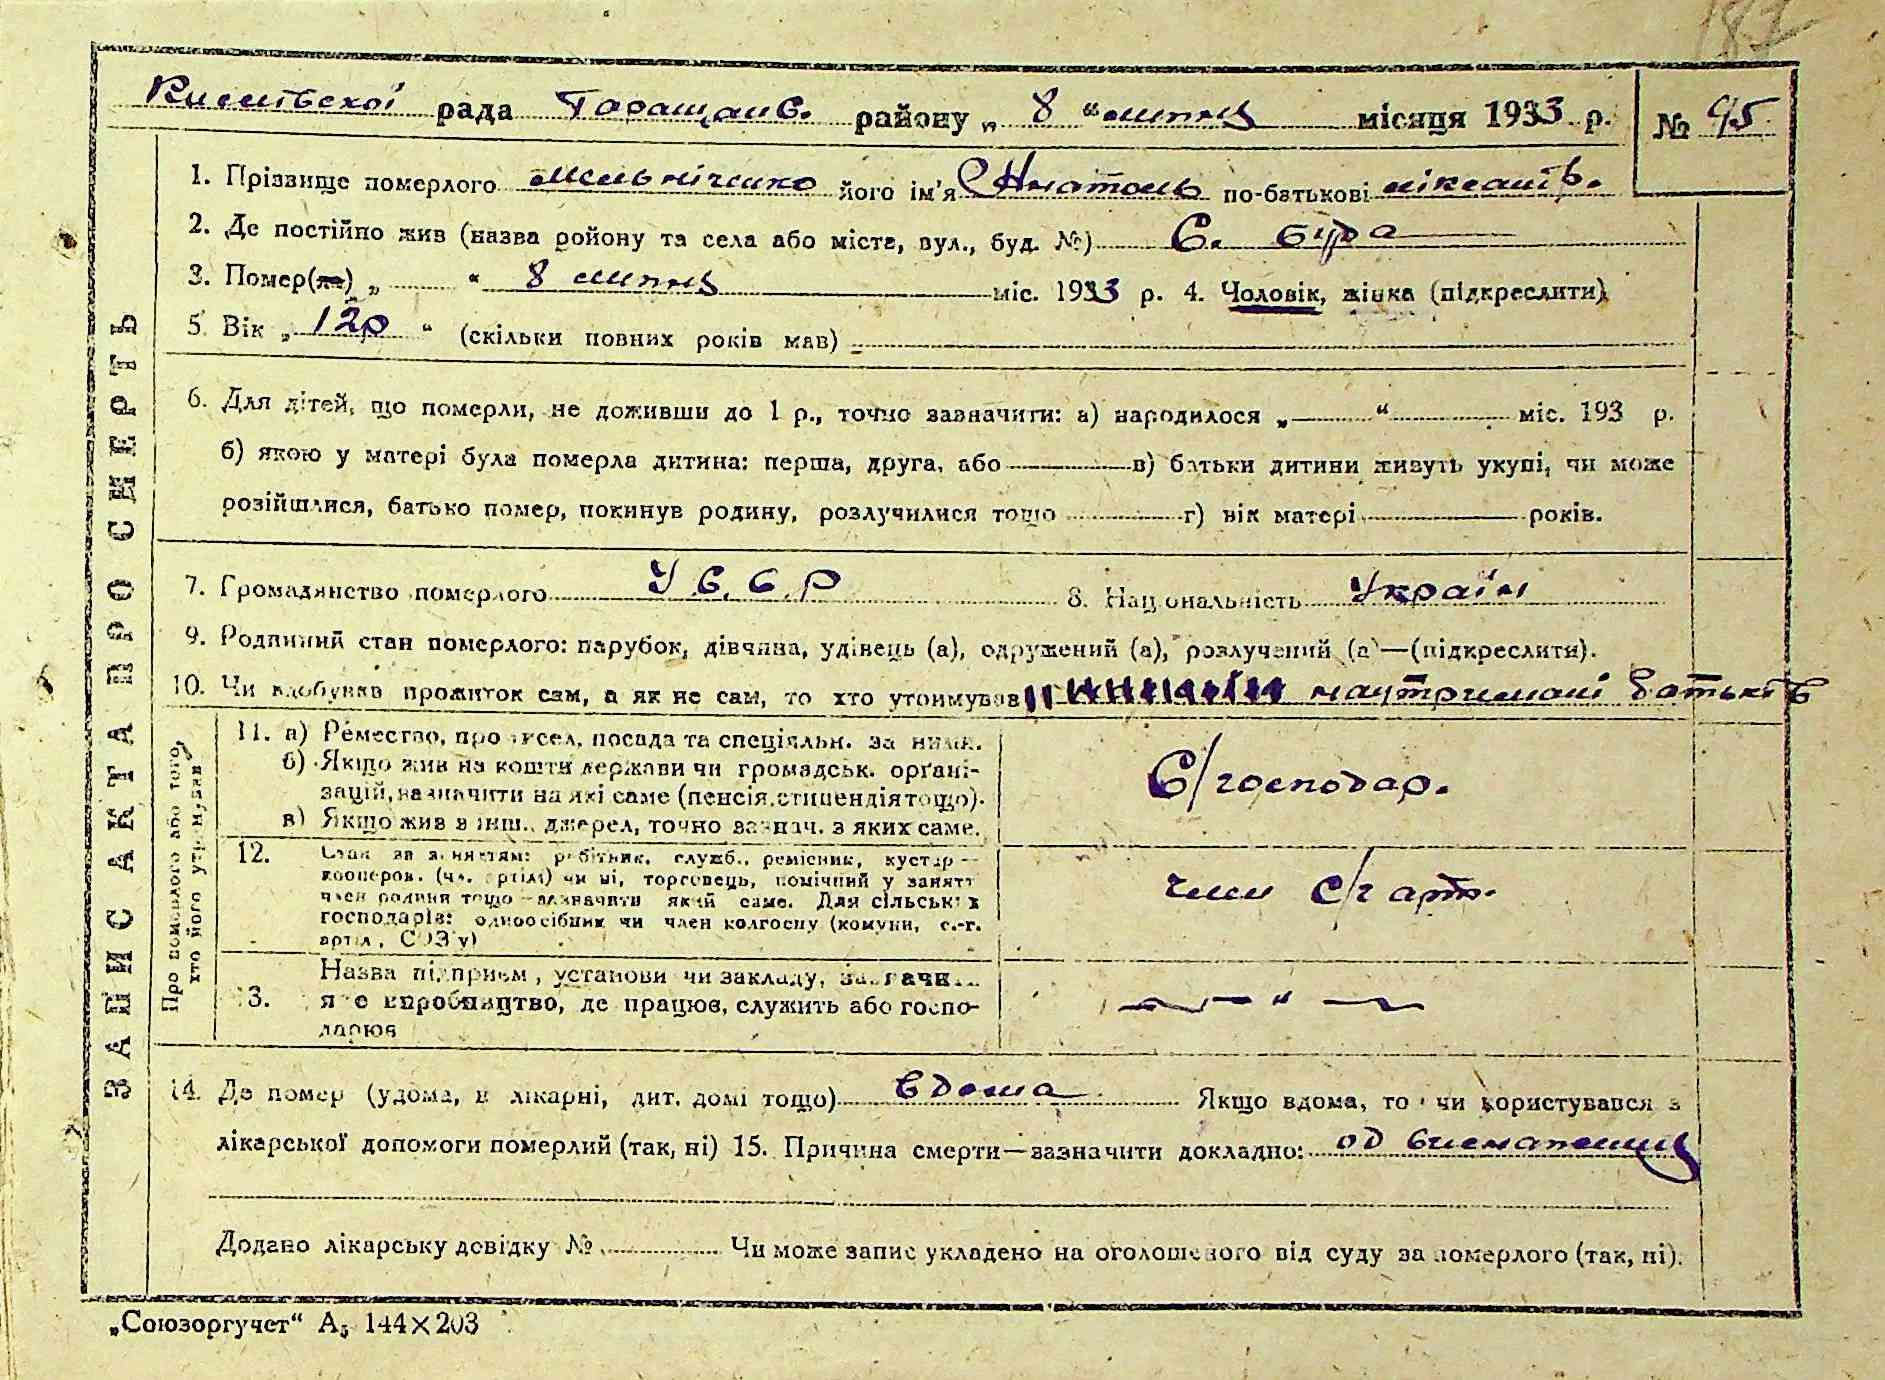 187
рада Таращанс. району „ 8 “ липня місяця 1933 р. № 45
1. Прізвище померлого Мельніченко його ім'я Анатоль по-батькові
2. Де постійно жив (назва ройону та села або міста, вул., буд. №) С. Буда
3. Помер(ла) „ “ 8 липня міс. 1933 р. 4. Чоловік, жінка (підкреслити)
5. Вік „ 12р “ (скільки повних років мав)
6. Для дітей, що померли, не доживши до 1 р., точно зазначити: а) народилося „ “ міс. 193 р.
б) якою у матері була померла дитина: перша, друга, або в) батьки дитини живуть укупі, чи може
розійшлися, батько помер, покинув родину, розлучилися тощо г) вік матері років.
7. Громадянство померлого У.С.С.Р 8. Національність Україн
9. Родинний стан померлого: парубок, дівчина, удівець (а), одружений (а), розлучений (а)—(підкреслити).
10. Чи здобував прожиток сам, а як не сам, то хто утримував наутримані батьків
ЗАПИС АКТА ПРО СМЕРТЬ
Про померлого або того, хто його утримував
11. а) Ремество, промисел, посада та спеціяльн. за ними.
б) Якщо жив на кошти держави чи громадськ. орґані-
зацій, зазначити на які саме (пенсія, стипендія тощо).
в) Якщо жив з інш. джерел, точно зазнач. з яких саме.
С/господар.
12. Стан за заняттям: робітник, служб., ремісник, кустар—
кооперов. (чл. артілі) чи ні, торговець, помічний у занятті
член родини тощо—зазначити який саме. Для сільських
господарів: одноосібник чи член колгоспу (комуни, с.-г.
артіл, СОЗ'у)
член С/г арт.
13. Назва підприєм, установи чи закладу, зазначи...
яке виробництво, де працює, служить або госпо-
дарює
— " —
14. Де помер (удома, в лікарні, дит. домі тощо) вдома Якщо вдома, то чи користувався з
лікарської допомоги померлий (так, ні) 15. Причина смерти—зазначити докладно: од
Додано лікарську довідку № Чи може запис укладено на оголошеного від суду за померлого (так, ні).
„Союзоргучет“ А5 144×203